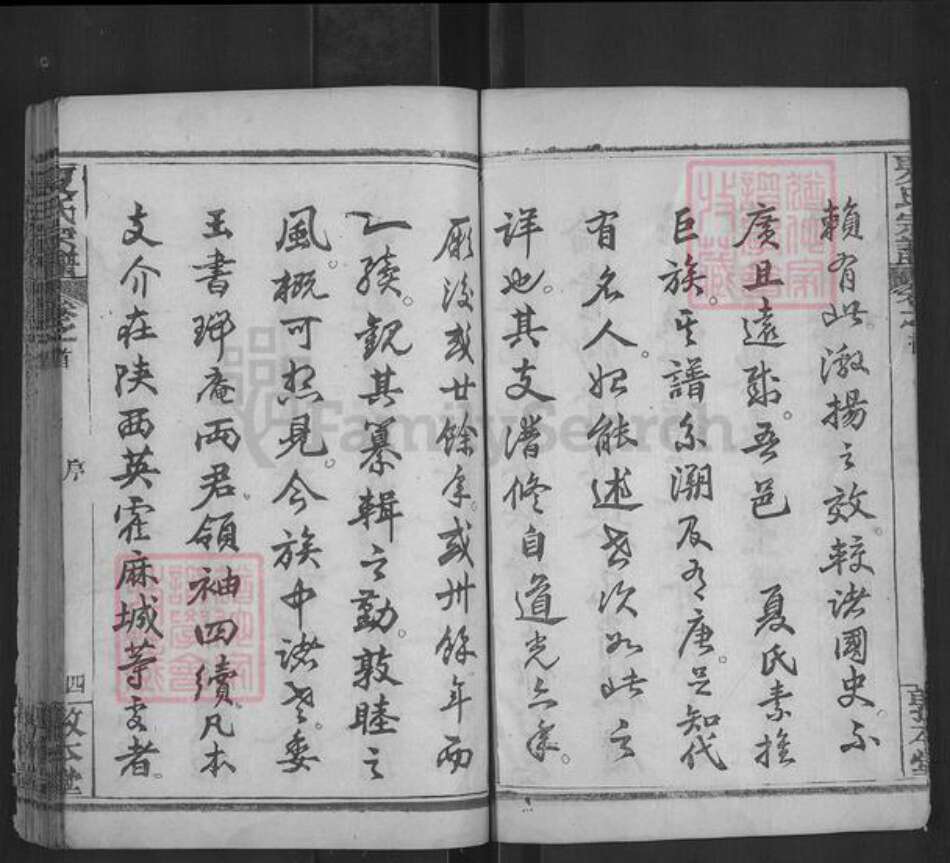 賴有此激揚之效較諸國史不
廣且遠歟。吾邑 夏氏素推
巨族。其譜系溯及有唐。足知代
有名人。始能述世次如此之
詳也。其支譜修自道光六年。
厥後或廿餘年。或卅餘年而
一續。觀其纂輯之勤。敦睦之
風。概可想見。今族中諸老。委
玉書 庵兩君。領袖四續。凡本
支介在陝西英霍麻城等支者。
夏氏宗譜
卷之首
序
四
敦本堂
FamilySearch